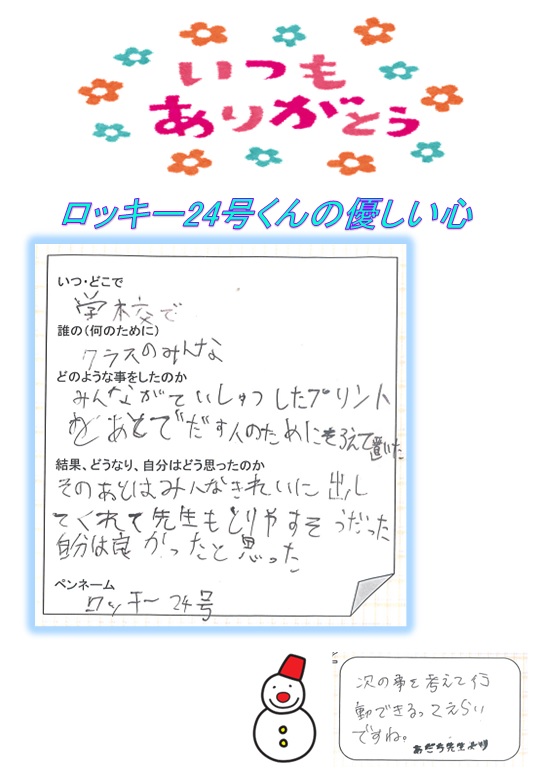 いつも
ありがとう
ロッキー24号くんの優しい心
いつ・どこで
学校で
誰の(何のために)
クラスのみんな
どのような事をしたのか
みんながていしゅつしたプリント
をあとでだす人のためにそろえて置いた
結果、どうなり、自分はどう思ったのか
そのあとはみんなきれいに出し
てくれて先生もとりやすそうだった
自分は良かったと思った
ペンネーム
ロッキー24号
次の事を考えて行
動できるってえらい
ですね。
あだち先生より